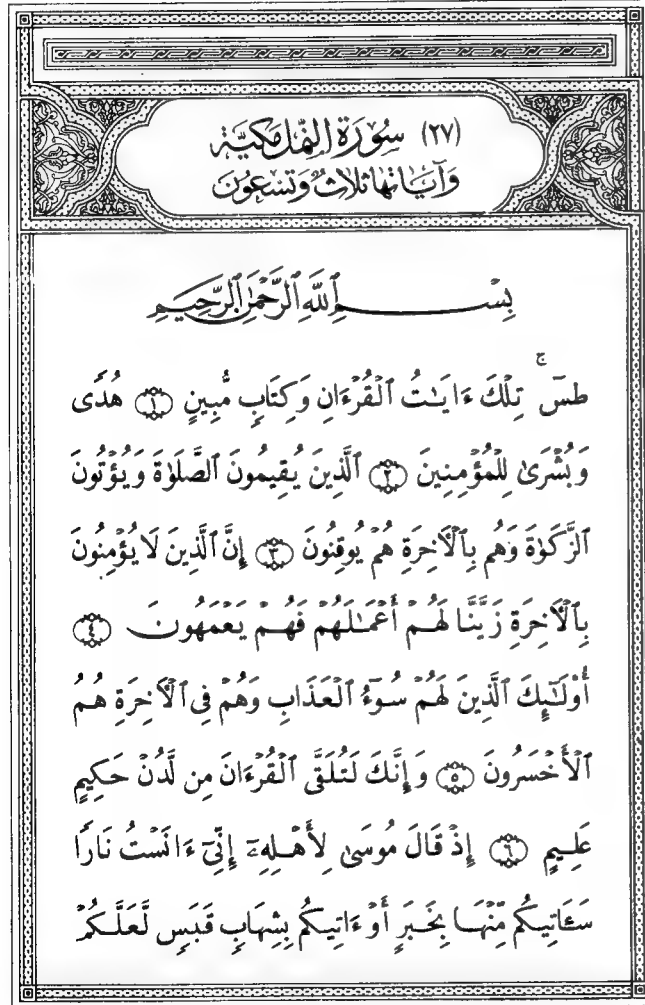 (٢٧) سُورَةُ النَّمْلِ مَكِّيَّة
وَآيَاتُهَا ثَلَاثٌ وَتِسْعُونَ
بِسْمِ ٱللَّهِ ٱلرَّحْمَٰنِ ٱلرَّحِيمِ
طسٓ ۚ تِلْكَ ءَايَٰتُ ٱلْقُرْءَانِ وَكِتَابٍ مُّبِينٍ ١ هُدًى
وَبُشْرَىٰ لِلْمُؤْمِنِينَ ٢ ٱلَّذِينَ يُقِيمُونَ ٱلصَّلَوٰةَ وَيُؤْتُونَ
ٱلزَّكَوٰةَ وَهُم بِٱلْأَخِرَةِ هُمْ يُوقِنُونَ ٣ إِنَّ ٱلَّذِينَ لَا يُؤْمِنُونَ
بِٱلْأَخِرَةِ زَيَّنَّا لَهُمْ أَعْمَٰلَهُمْ فَهُمْ يَعْمَهُونَ ٤
أُوْلَٰٓئِكَ ٱلَّذِينَ لَهُمْ سُوٓءُ ٱلْعَذَابِ وَهُمْ فِى ٱلْأَخِرَةِ هُمُ
ٱلْأَخْسَرُونَ ٥ وَإِنَّكَ لَتُلَقَّى ٱلْقُرْءَانَ مِن لَّدُنْ حَكِيمٍ
عَلِيمٍ ٦ إِذْ قَالَ مُوسَىٰ لِأَهْلِهِۦٓ إِنِّىٓ ءَانَسْتُ نَارًا
سَـَٔاتِيكُم مِّنْهَا بِخَبَرٍ أَوْ ءَاتِيكُم بِشِهَابٍ قَبَسٍ لَّعَلَّكُمْ